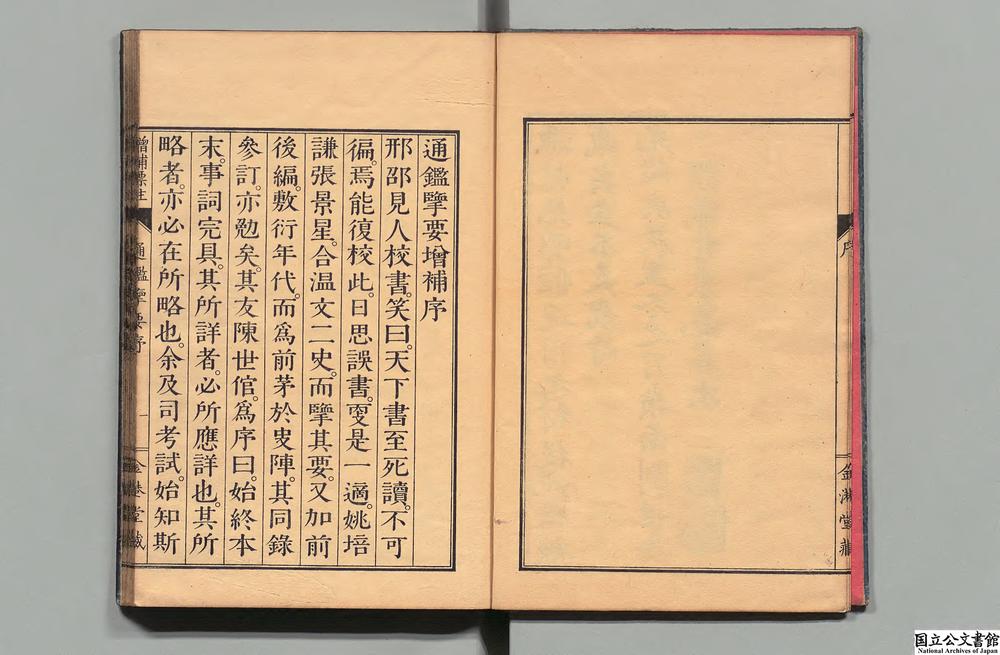 序
通鑑擥要增補序
邢邵見人校書。笑曰。天下書至死讀。不可
徧。焉能復校此。日思誤書。更是一適。姚培
謙張景星。合温文二史。而擥其要。又加前
後編。敷衍年代。而爲前茅於史陣。其同錄
參訂。亦勉矣。其友陳世倌。爲序曰。始終本
末。事詞完具。其所詳者。必所應詳也。其所
略者。亦必在所略也。余及司考試。始知斯
增補標註 通鑑擥要序 一
国立公文書館
National Archives of Japan